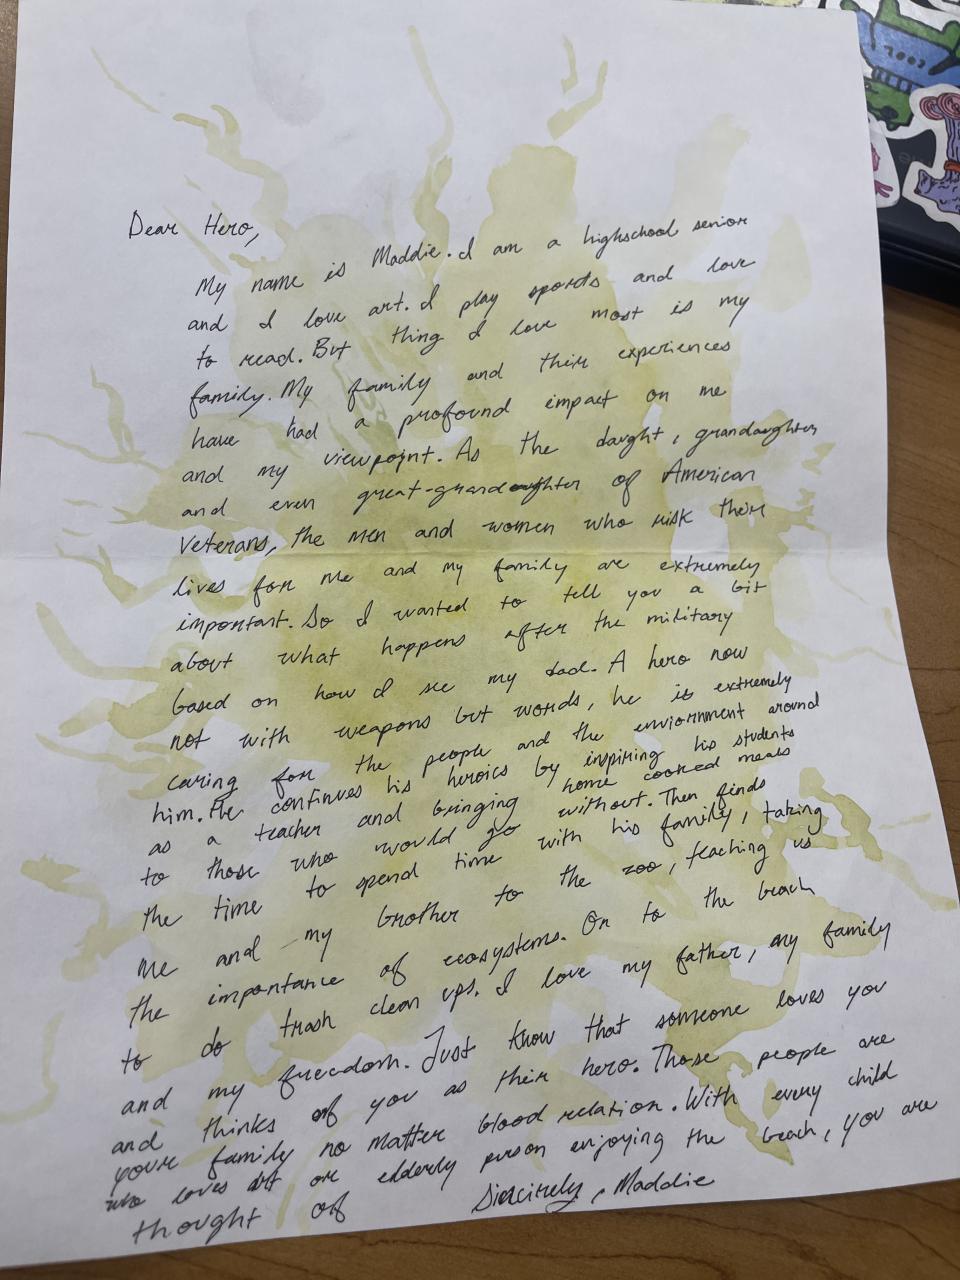 Dear Hero,
My name is Maddie. I am a highschool senior
and I love art. I play sports and love
to read. But thing I love most is my
family. My family and their experiences
have had a profound impact on me
and my viewpoint. As the daught, grandaughter
and even great-grandaughter of American
Veterans, the men and women who risk their
lives for me and my family are extremely
important. So I wanted to tell you a bit
about what happens after the military
based on how I see my dad. A hero now
not with weapons but words, he is extremely
caring for the people and the enviornment around
him. He continues his heroics by inspiring his students
as a teacher and bringing home cooked meals
to those who would go without. Then finds
the time to spend time with his family, taking
me and my brother to the zoo, teaching us
the importance of ecosystems. On to the beach
to do trash clean ups. I love my father, my family
and my freedom. Just know that someone loves you
and thinks of you as their hero. Those people are
your family no matter blood relation. With every child
who loves art or elderly person enjoying the beach, you are
thought of Sincirely, Maddie
COOL